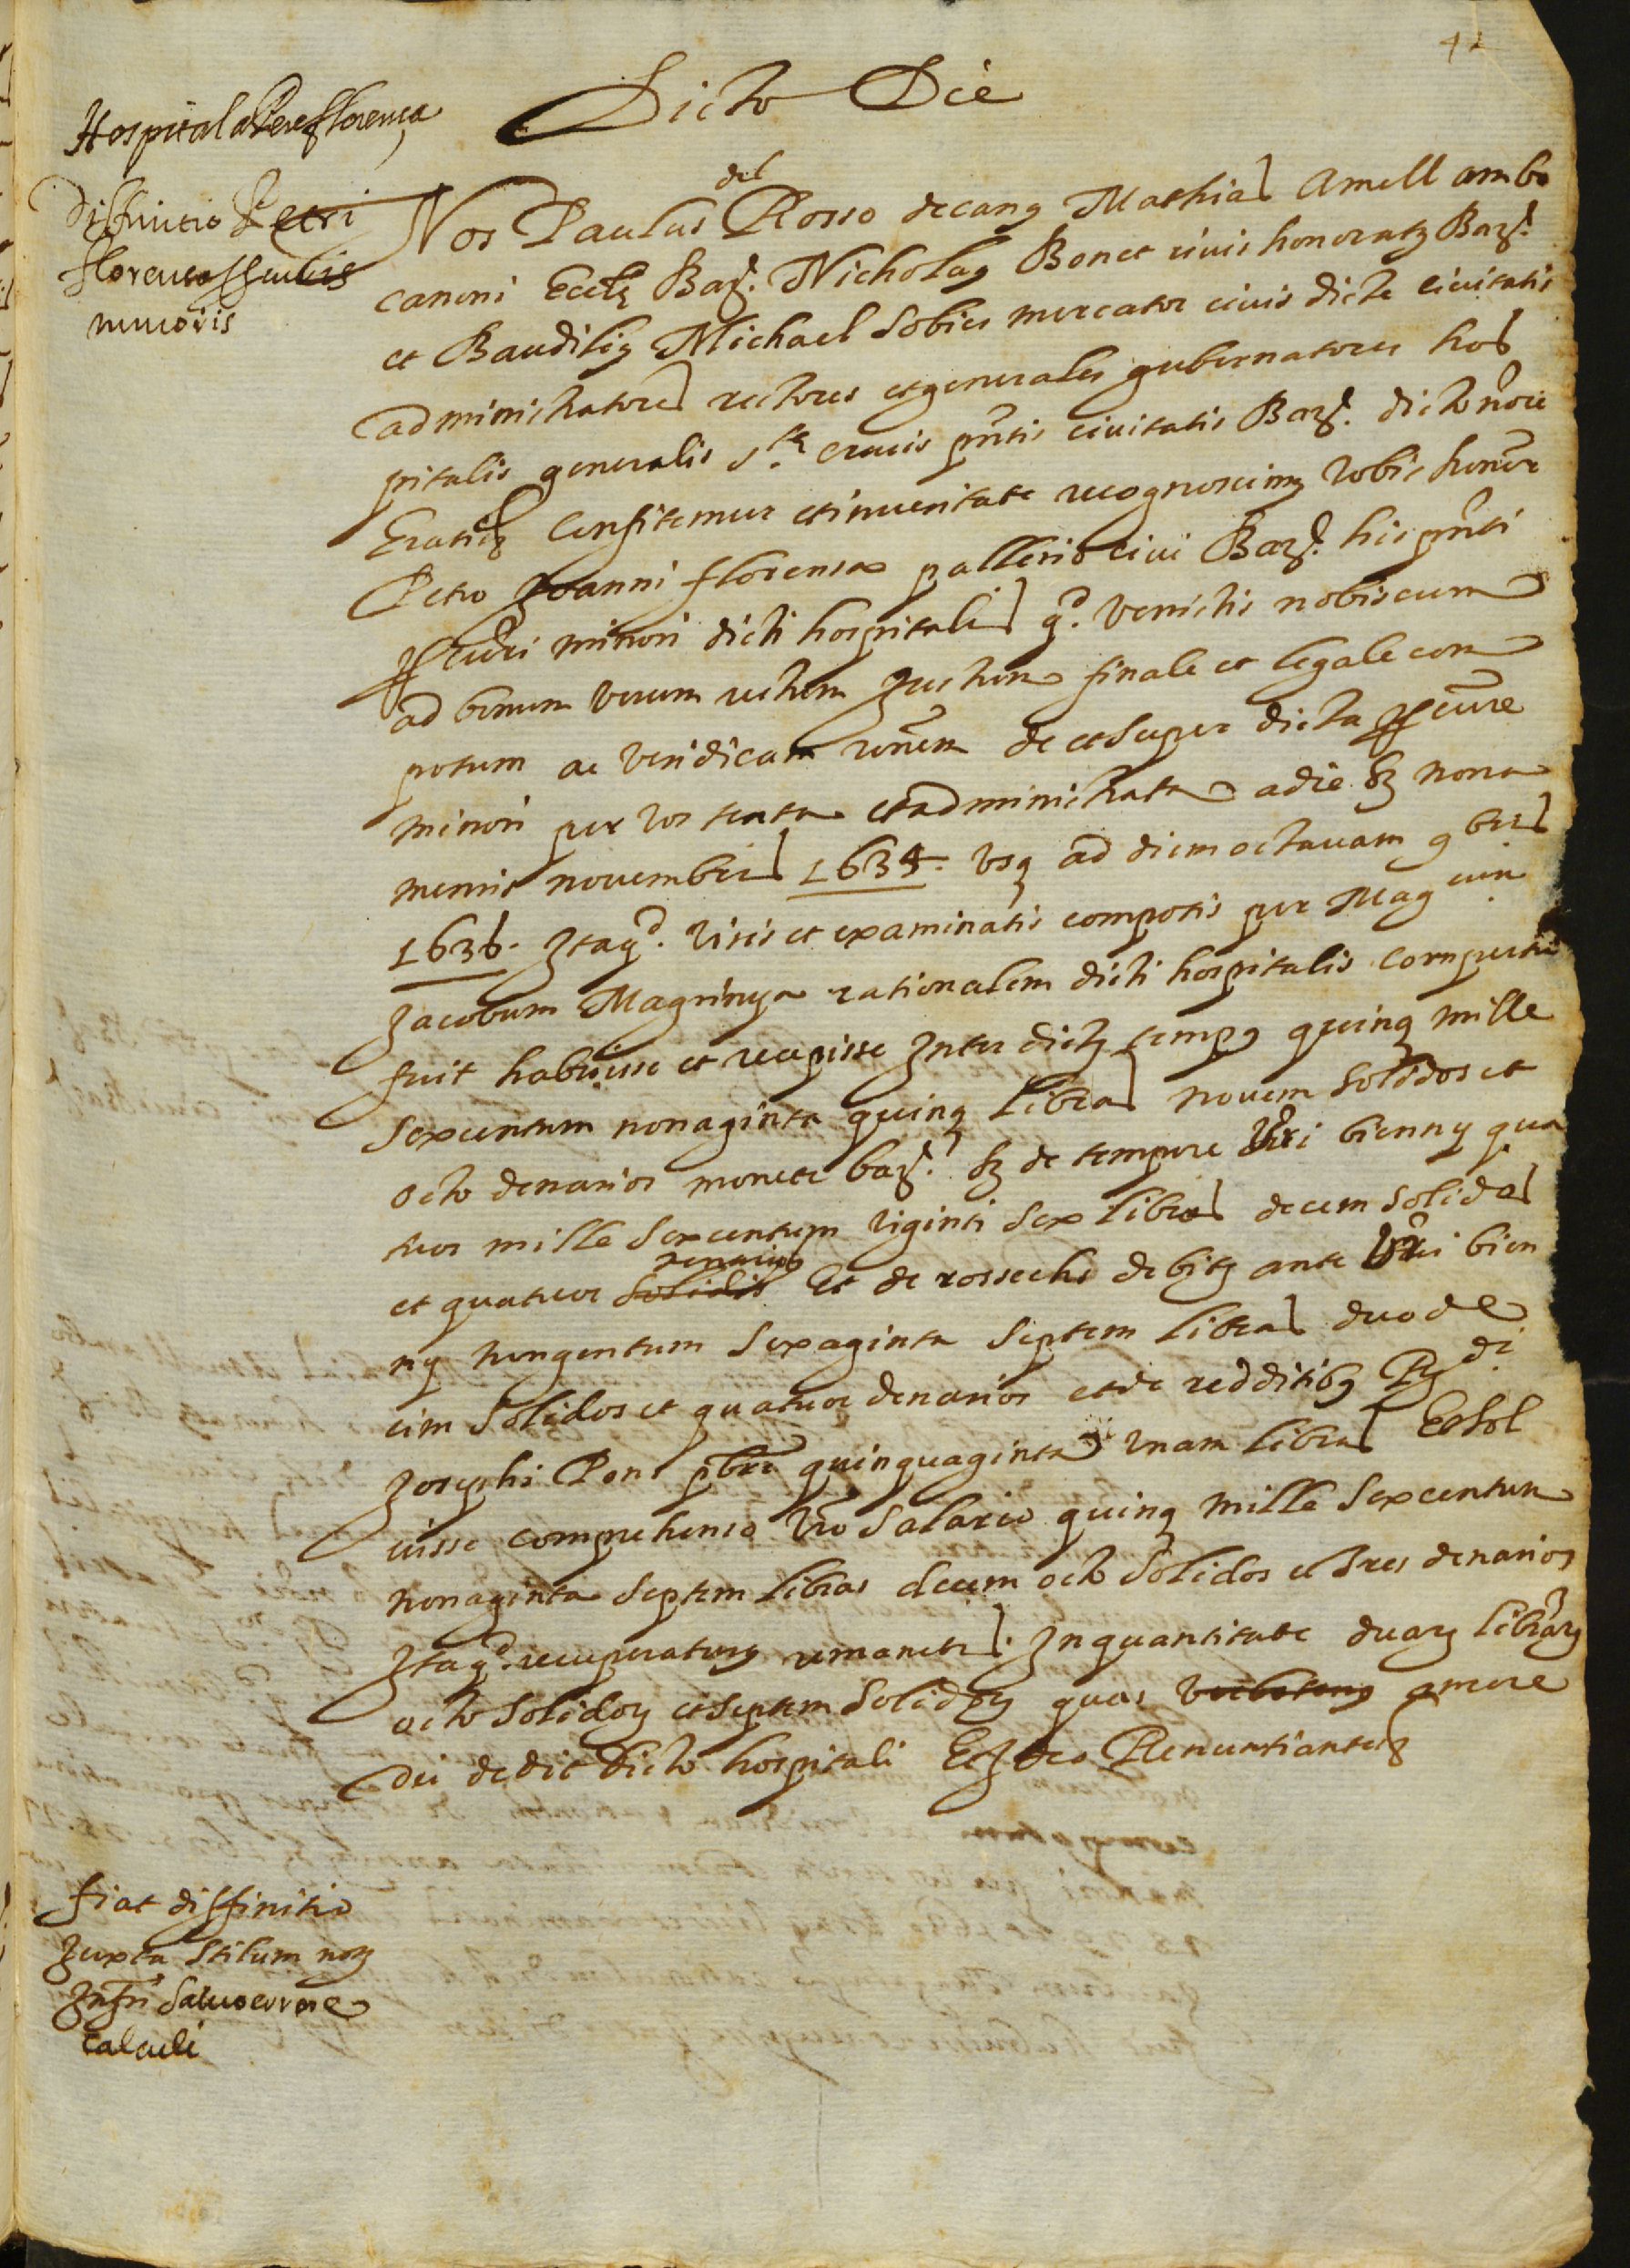 42
Dicto Die
Hospital a Pere florença
Diffinitio Petri
florensa
minoris
Nos Paulus del Rosso decanus Mathias Amell ambo
canoni Eccle Barᵉ. Nicholaus Bonet civis honoratus Barᵉ.
et Baudilius Michael Sobies mercator civis dicte civitatis
administratores rectores et generales gubernatores hos
pitalis generalis s.te crucis pntis civitatis Barᵉ. dicto noie
Gratis Confitemur et in veritate recognoscimus vobis honor
Petro Joanni florensa civi Barᵉ. his pnti
minori dicti hospitalis q.d venistis nobiscum
ad bonum verum rectum Justum finale et legale com
potum ac veridicam ronem de et super dicta
minori per vos tenta et administrata a die nona
mensis novembris 1634. usq ad diem octavam 9bris
1636. Itaq.d visis et examinatis compotis per Mag cum
Jacobum Magrinya rationalem dicti hospitalis compertu
fuit habuisse et recepisse Inter dictu tempus quinq mille
sexcentum nonaginta quinq libras novem solidos et
octo denarios monete barᵉ. de tempore vri bienny qua
tuor mille sexcentum viginti sex libras decem solidos
et quatuor solidis denarios Et de rossechs debitis ante vri bien
ny nongentum sexaginta septem libras duode
cim solidos et quatuor denarios et de redditibus Rdi
Josephi Pons pbri quinquaginta unam libras Exsol
visse comprehenso vro salario quinq mille sexcentum
nonaginta septem libras decem octo solidos et tres denarios
Itaq.d recuperaturus remanetis. In quantitate duarum librarum
octo solidorum et septem solidorum quas amore
dei dedit dicto hospitali Et Ideo Renuntiantes
fiat diffinitio
Juxta stilum not
salvo errore
calculi